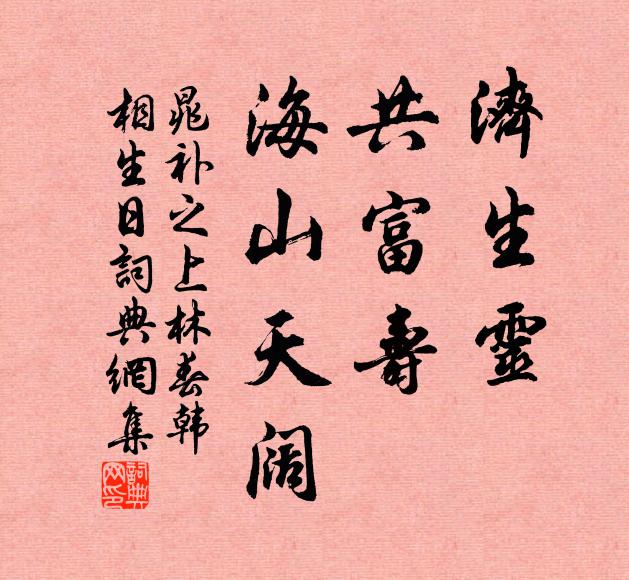 濟生靈
共富壽
海山天阔
晁补之上林春韩
相生日詞典網集
詞典网印